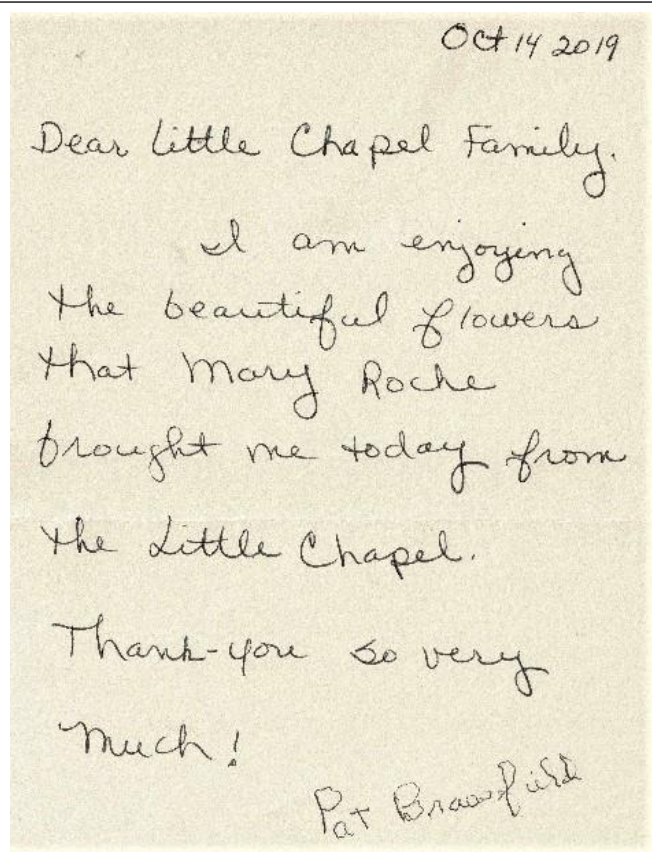 Oct 14 2019
Dear Little Chapel Family.
I am enjoying
the beautiful flowers
that Mary Roche
brought me today from
the Little Chapel.
Thank-you so very
Much!
Pat